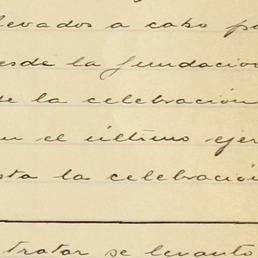 levados a cabo p
esde la fundacion
de la celebración
n el último ejer
sta la celebración
tratar se levanto